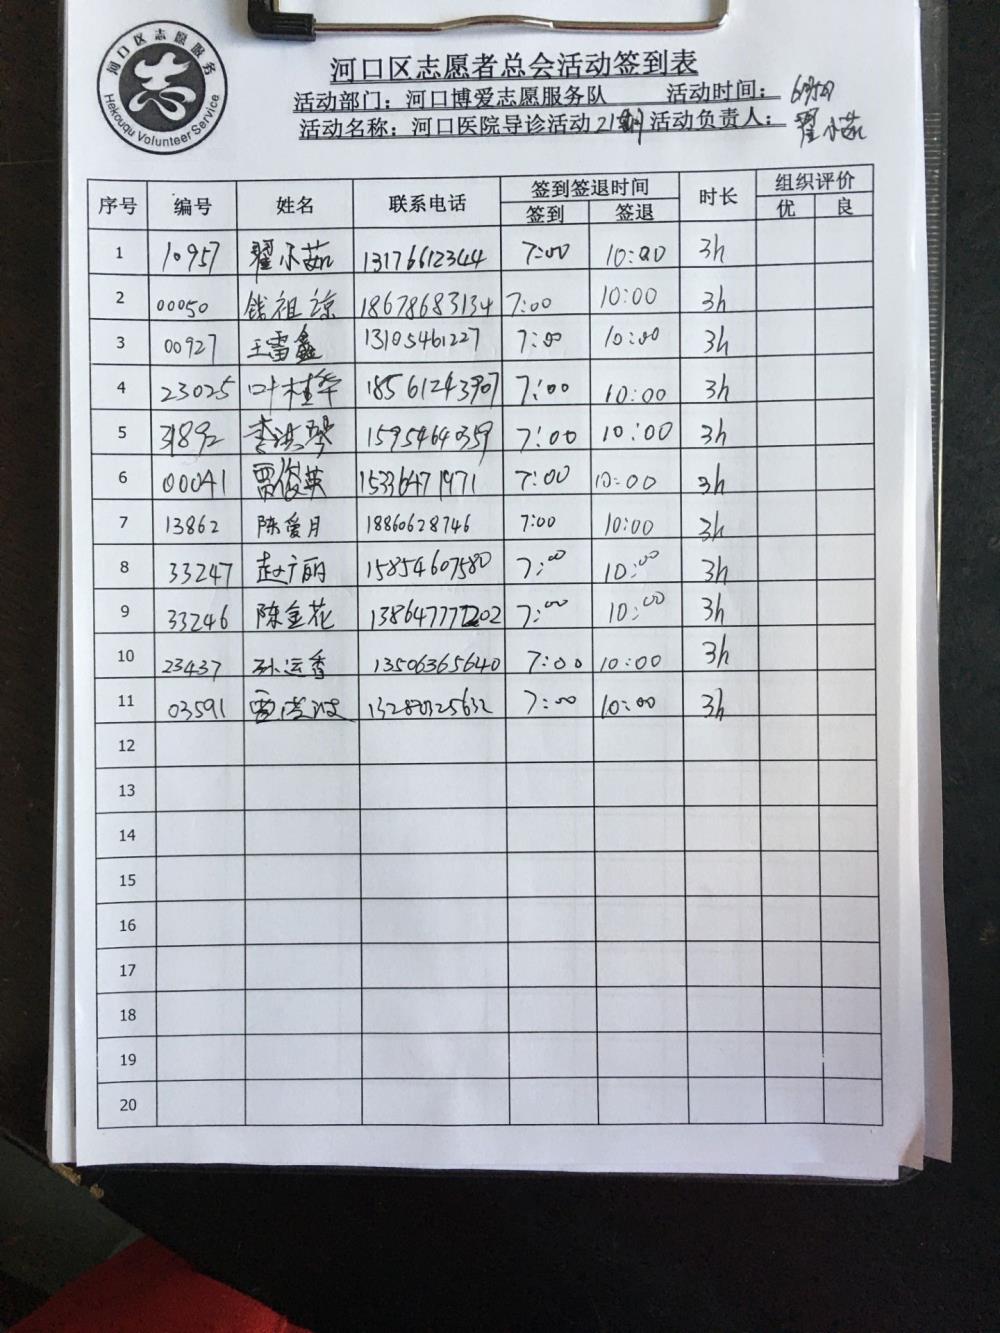 河口区志愿服务
志
Hekouqu Volunteer Service
河口区志愿者总会活动签到表
活动部门：河口博爱志愿服务队 活动时间：
活动名称：河口医院导诊活动21期 活动负责人：翟小茹
序号 编号 姓名 联系电话 签到签退时间 时长 组织评价
签到 签退 优 良
1 10957 翟小茹 13176612344 7:00 10:00 3h
2 00050 钱祖琼 18678683134 7:00 10:00 3h
3 00927 王雷鑫 13105461227 7:00 10:00 3h
4 23025 叶桂华 18561243907 7:00 10:00 3h
5 31892 李洪琴 15954640359 7:00 10:00 3h
6 00041 贾俊英 15336471971 7:00 10:00 3h
7 13862 陈爱月 18860628746 7:00 10:00 3h
8 33247 赵广丽 15854607580 7:00 10:00 3h
9 33246 陈金花 13864777202 7:00 10:00 3h
10 23437 孙运香 13506365640 7:00 10:00 3h
11 03591 7:00 10:00 3h
12
13
14
15
16
17
18
19
20